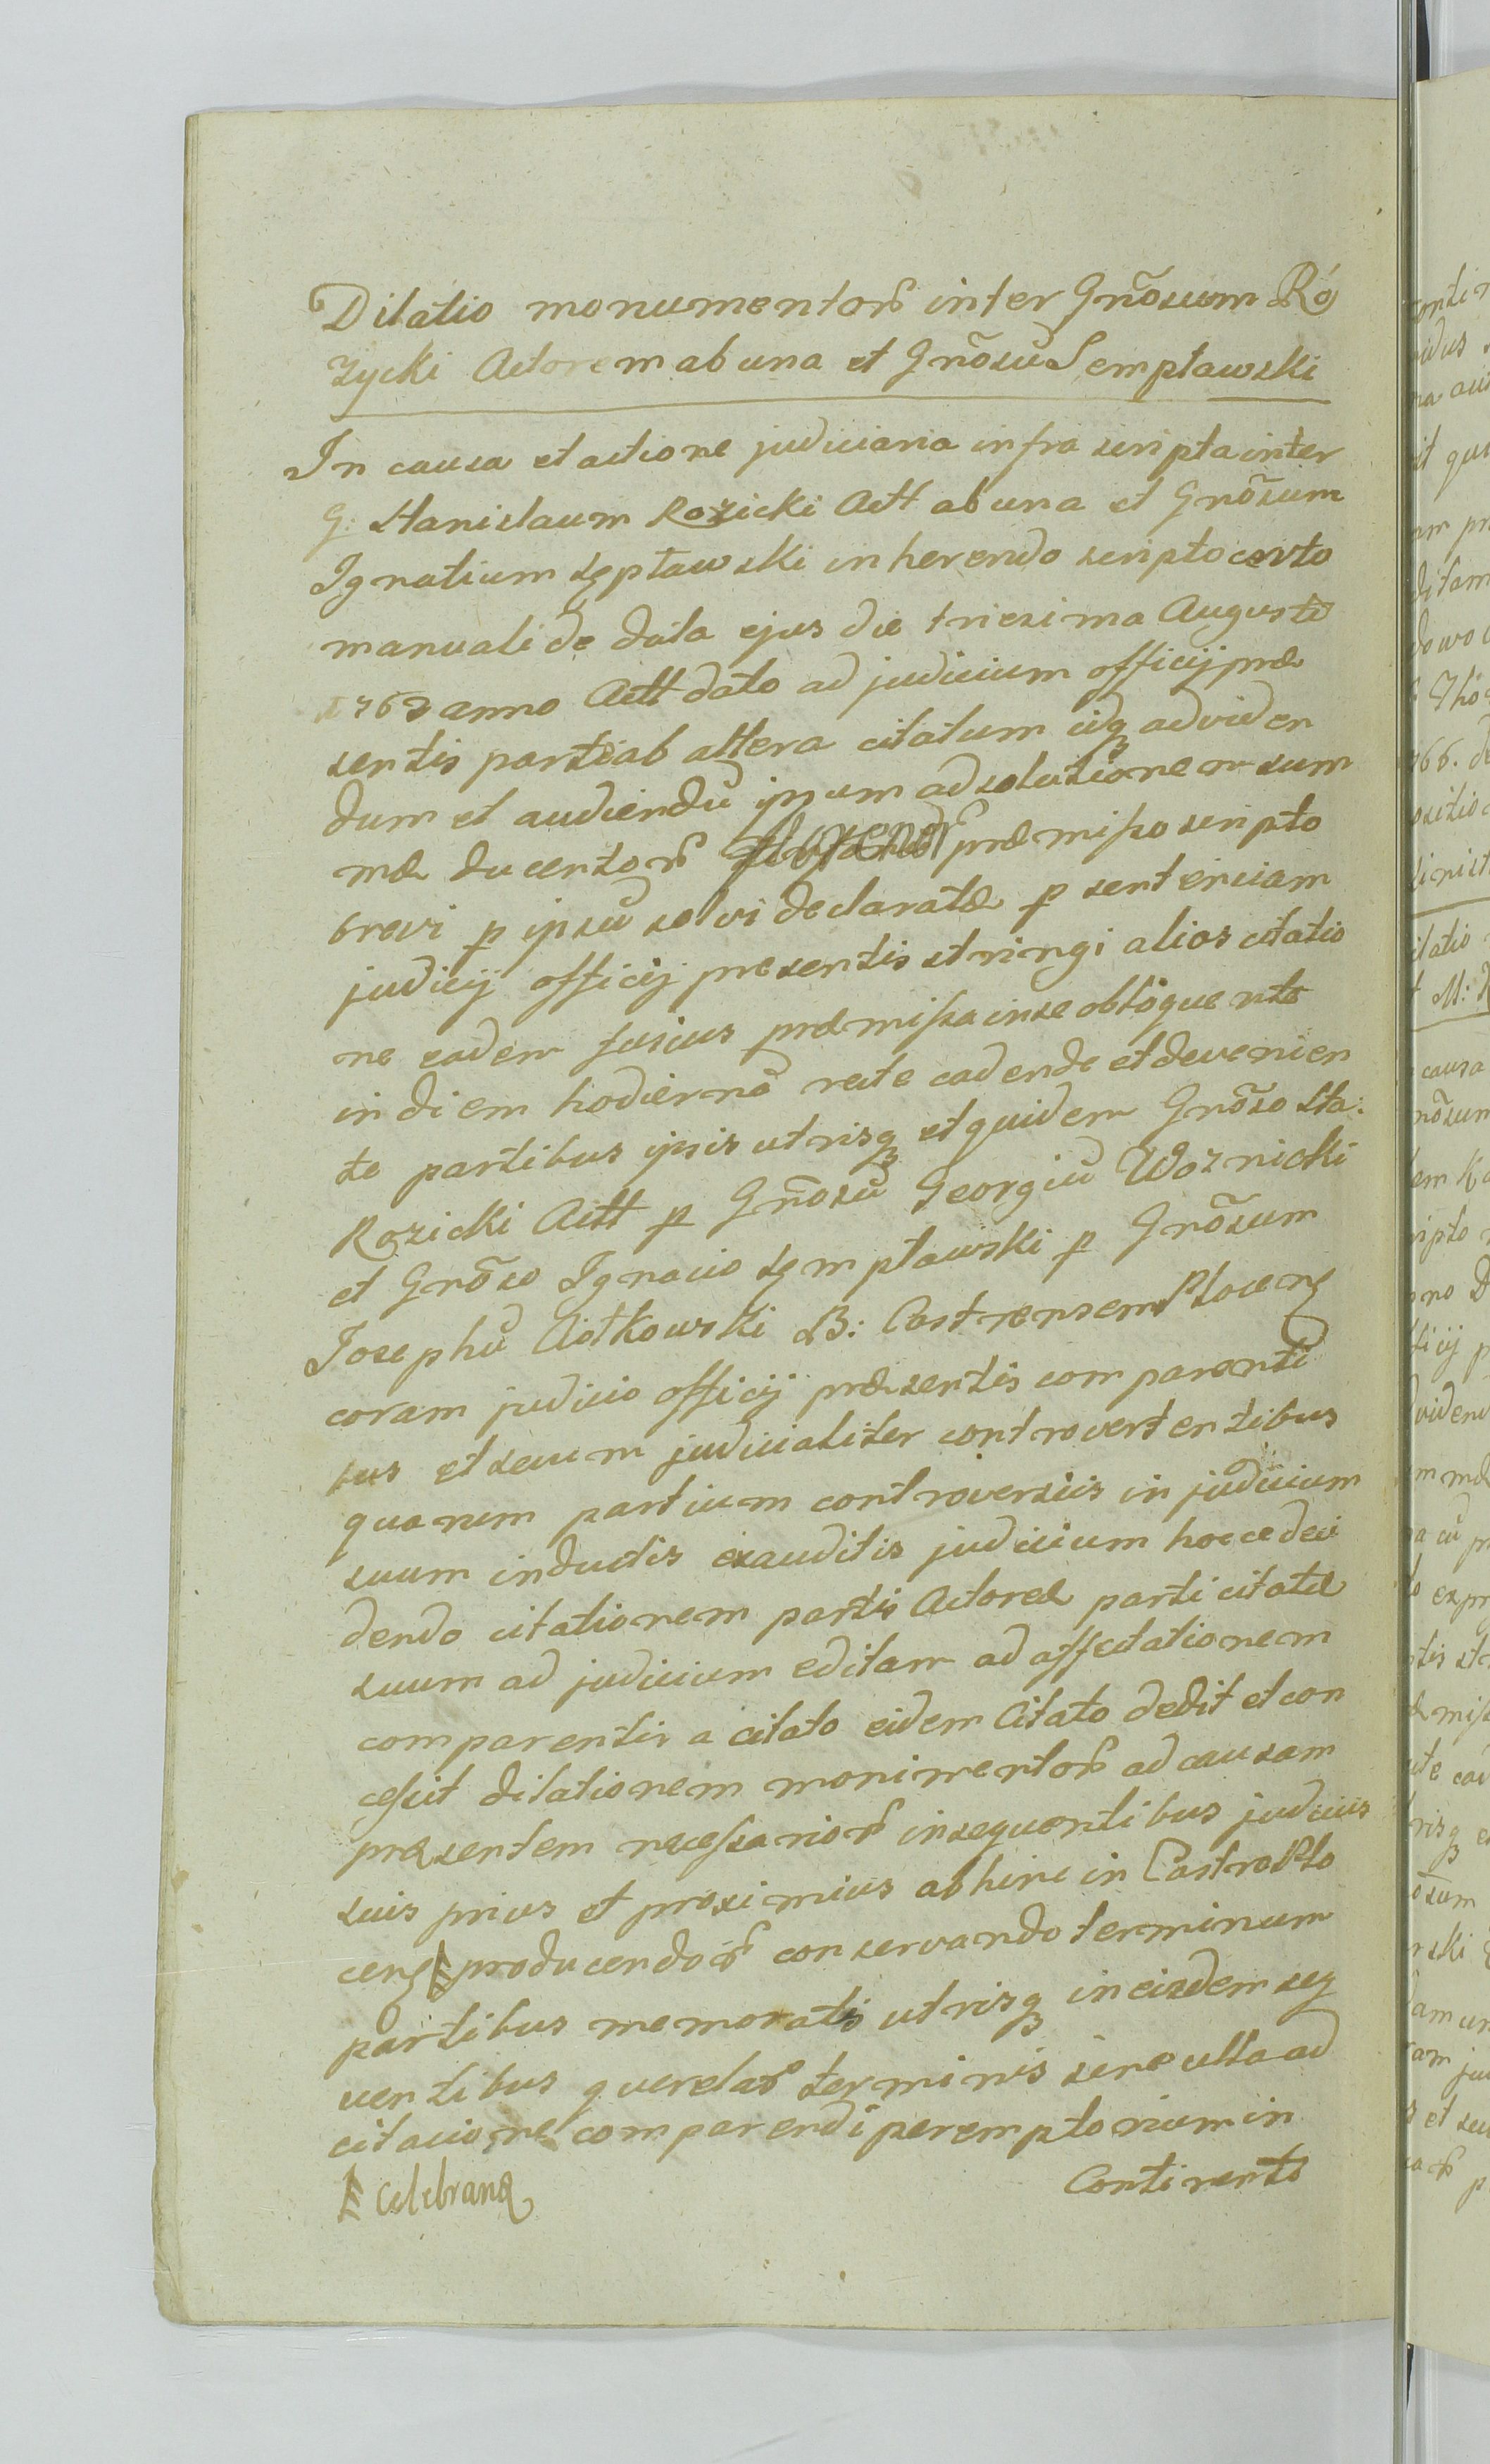 Dilatio monumentorũ inter Gnõsum Ró
życki Actorem ab una et Gnõsũ Semptawski
In causa et actione judiciaria infra scripta inter
G: Stanislaum Rozicki Actt ab una et Gnõsum
Ignatium Sęptawski inherendo scripto certo
manuali de data ejus die triesima Augusti
1763 anno Actt dato ad judicium officij præ
sentis parte ab altera citatum idq̃ ad viden
dum et audiendũ ipsum ad solutionem sum
mæ ducentorũ præmisso scripto
brevi p ipsũ solvi declaratæ p sentenciam
judicij officij presentis stringi alios citatio
ne eadem fusius præmissa in se obloquente
in diem hodiernã recte cadende et devenien
te partibus ipsis utrisq̃ et quidem Gnõso Sta:
Rozicki Actt p Gnõsũ Georgiũ Woznicki
et Gnõso Ignacio Sęmptawski p Gnõsum
Josephũ Ciołkowski B: Castrensem Plocens
coram judicio officij præsentis comparenti
bus et secum judicialiter controvertentibus
quarum partium controversiis in judicium
suum inductis exauditis judicium hocce deci
dendo citationem partis Actoreæ parti citatæ
suum ad judicium editam ad affectationem
comparentis a citato eidem Citato dedit et con
cessit dilationem monimentorũ ad causam
præsentem necessariorũ in sequentibus judiciis
suis prius et proximius abhinc in Castro Plo
cens producendorũ conservando terminum
partibus memoratis utrisq̃ in eisdem seq
uentibus querelarũ terminis sine ulla ad
citacione comparendi peremptorium in
celebrand
Continenti